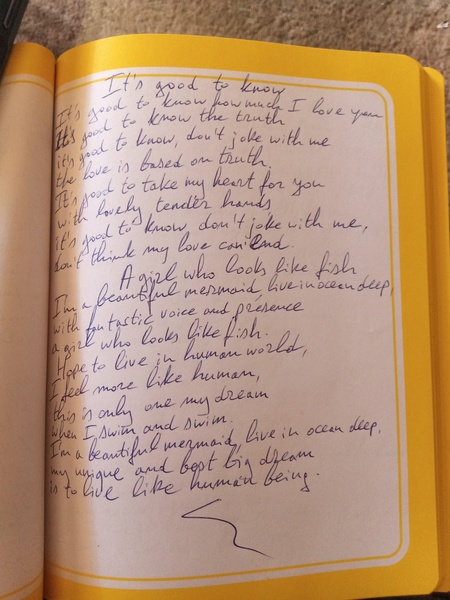 It's good to know
It's good to know how much I love you
It's good to know the truth
it's good to know, don't joke with me
the love is based on truth.
It's good to take my heart for you
with lovely tender hands
it's good to know don't joke with me,
don't think my love can end.
A girl who looks like fish
I'm a beautiful mermaid, live in ocean deep,
with fantactic voice and presence
a girl who looks like fish.
Hope to live in human world,
I feel more like human,
this is only one my dream
when I swim and swim.
I'm a beautiful mermaid, live in ocean deep,
my unique and best big dream
is to live like human being.